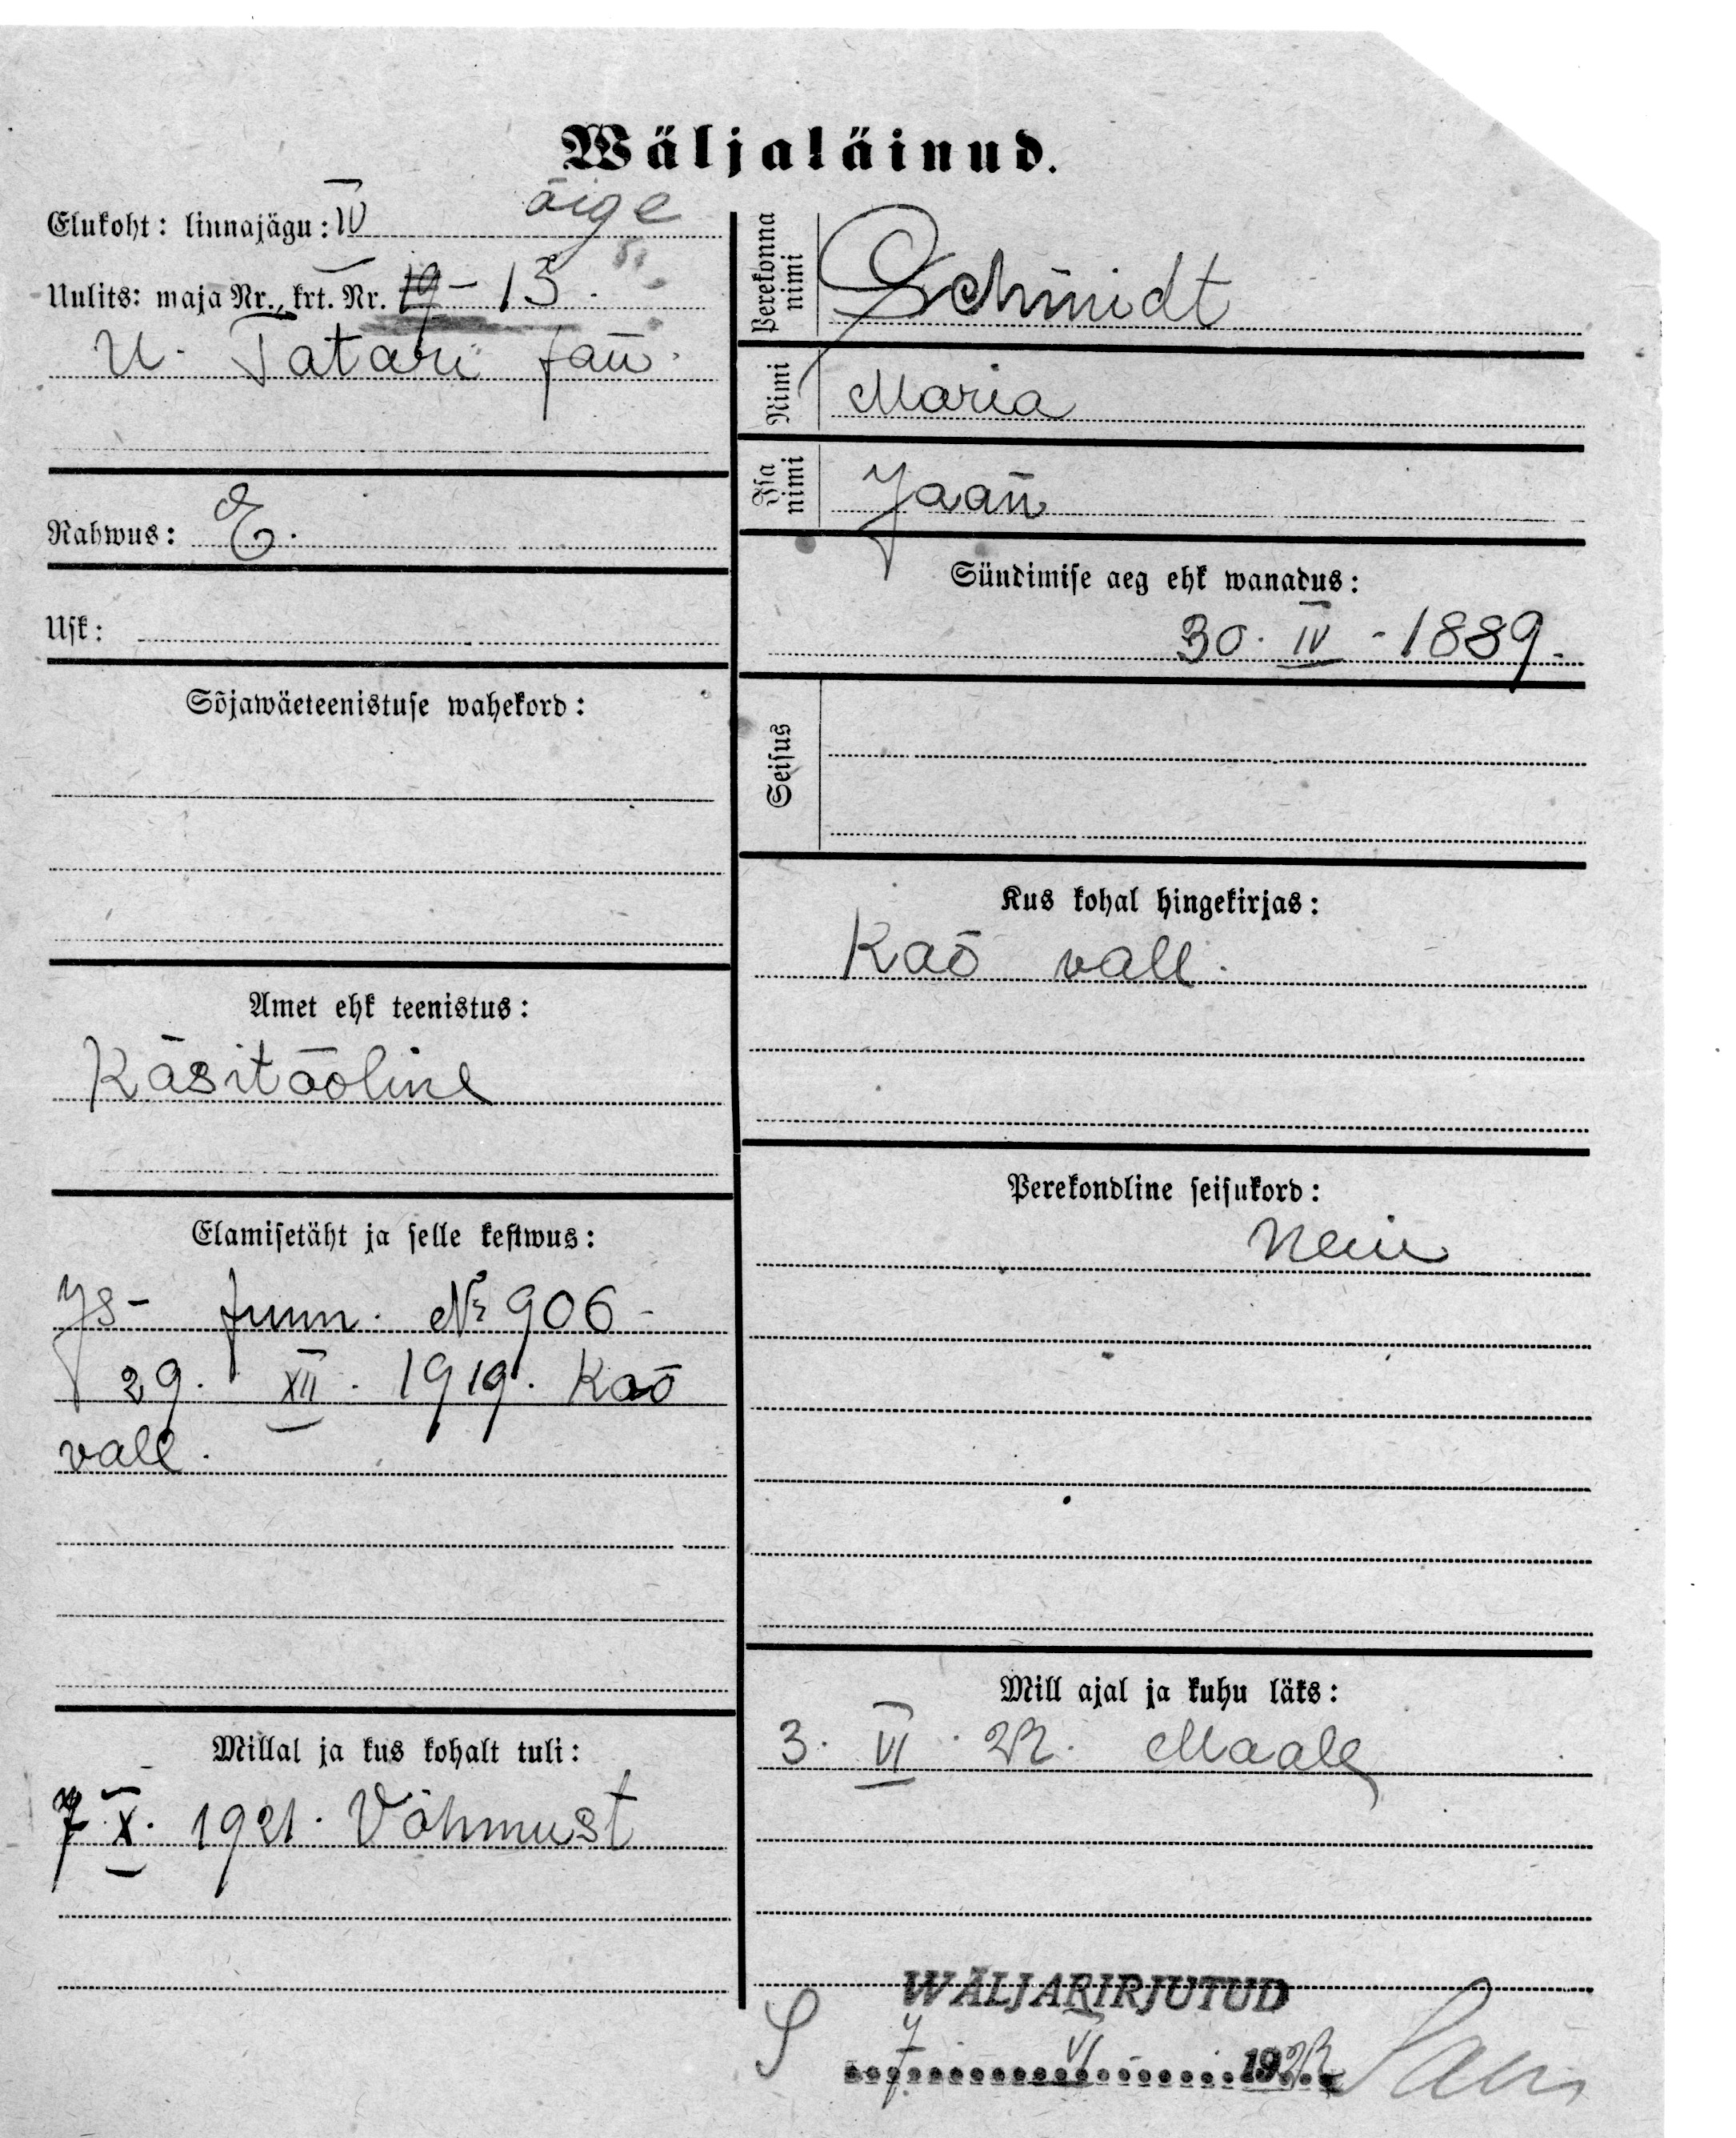 Wäljaläinud.
Elukoht: linnajägu: IV
õige
Uulits: maja Nr., krt. Nr. 19 - 13.
U. Tatari tän.
Rahwus: E.
Usk:
Sõjawäeteenistuse wahekord:
Amet ehk teenistus:
Käsitööline
Elamisetäht ja selle kestwus:
Is- tunn. № 906-
29. XII. 1919. Kaō
vall.
Millal ja kus kohalt tuli:
7 X. 1921. Võhmust
Perekonna nimi
Schmidt
Nimi
Maria
Isa nimi
Jaan
Sündimise aeg ehk wanadus:
30. IV - 1889.
Seisus
Kus kohal hingekirjas:
Kaō vall.
Perekondline seisukord:
Neiu
Mill ajal ja kuhu läks:
3. VI. 22. Maale
WÄLJAKIRJUTUD
7 VI 1922